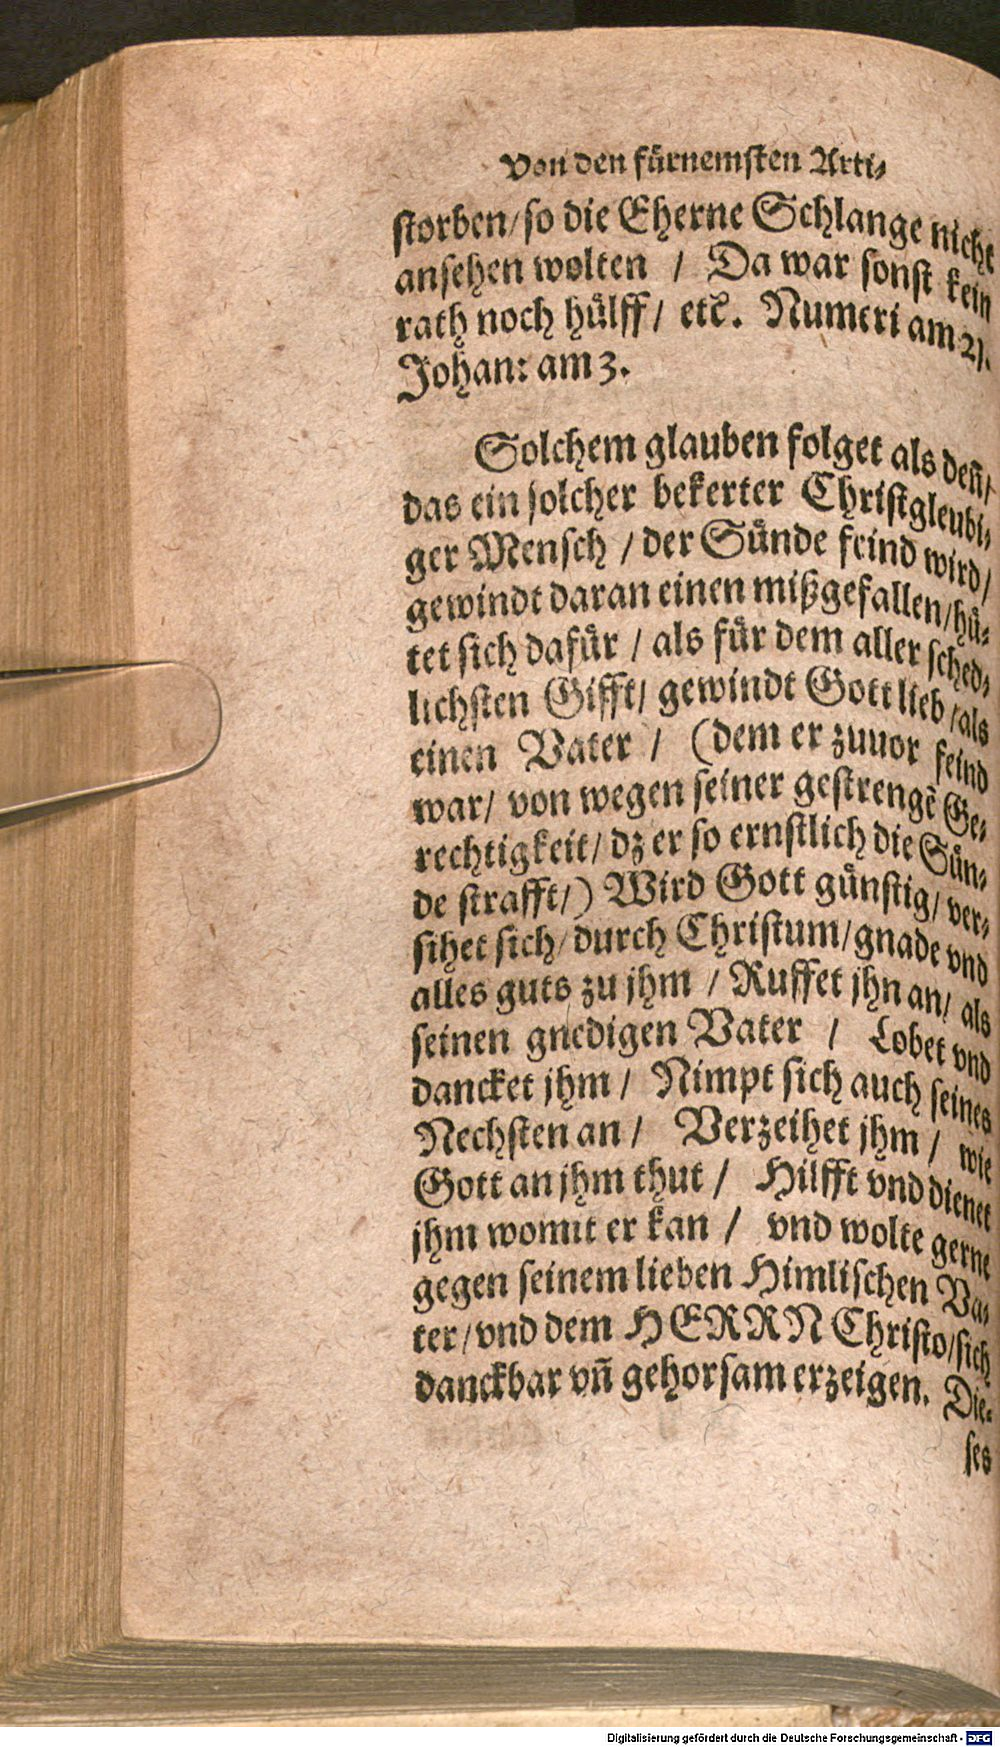 Von den fürnemsten Arti-
storben/ so die Eherne Schlange nicht
ansehen wolten / Da war sonst kein
rath noch hülff/ etc̃. Numeri am 21.
Johan: am 3.
Solchem glauben folget als deñ/
das ein solcher bekerter Christgleubi-
ger Mensch / der Sünde feind wird/
gewindt daran einen mißgefallen/ hü-
tet sich dafür / als für dem aller sched-
lichsten Gifft/ gewindt Gott lieb /als
einen Vater / (dem er zuuor feind
war/ von wegen seiner gestrengẽ Ge-
rechtigkeit/ dz er so ernstlich die Sün-
de strafft/) Wird Gott günstig/ ver-
sihet sich/ durch Christum/ gnade vnd
alles guts zu jhm / Ruffet jhn an/ als
seinen gnedigen Vater / Lobet vnd
dancket jhm / Nimpt sich auch seines
Nechsten an / Verzeihet jhm / wie
Gott an jhm thut / Hilfft vnd dienet
jhm womit er kan / vnd wolte gerne
gegen seinem lieben Himlischen Va-
ter/ vnd dem HERRN Christo/ sich
danckbar vñ gehorsam erzeigen. Die-
ses
Digitalisierung gefördert durch die Deutsche Forschungsgemeinschaft - DFG